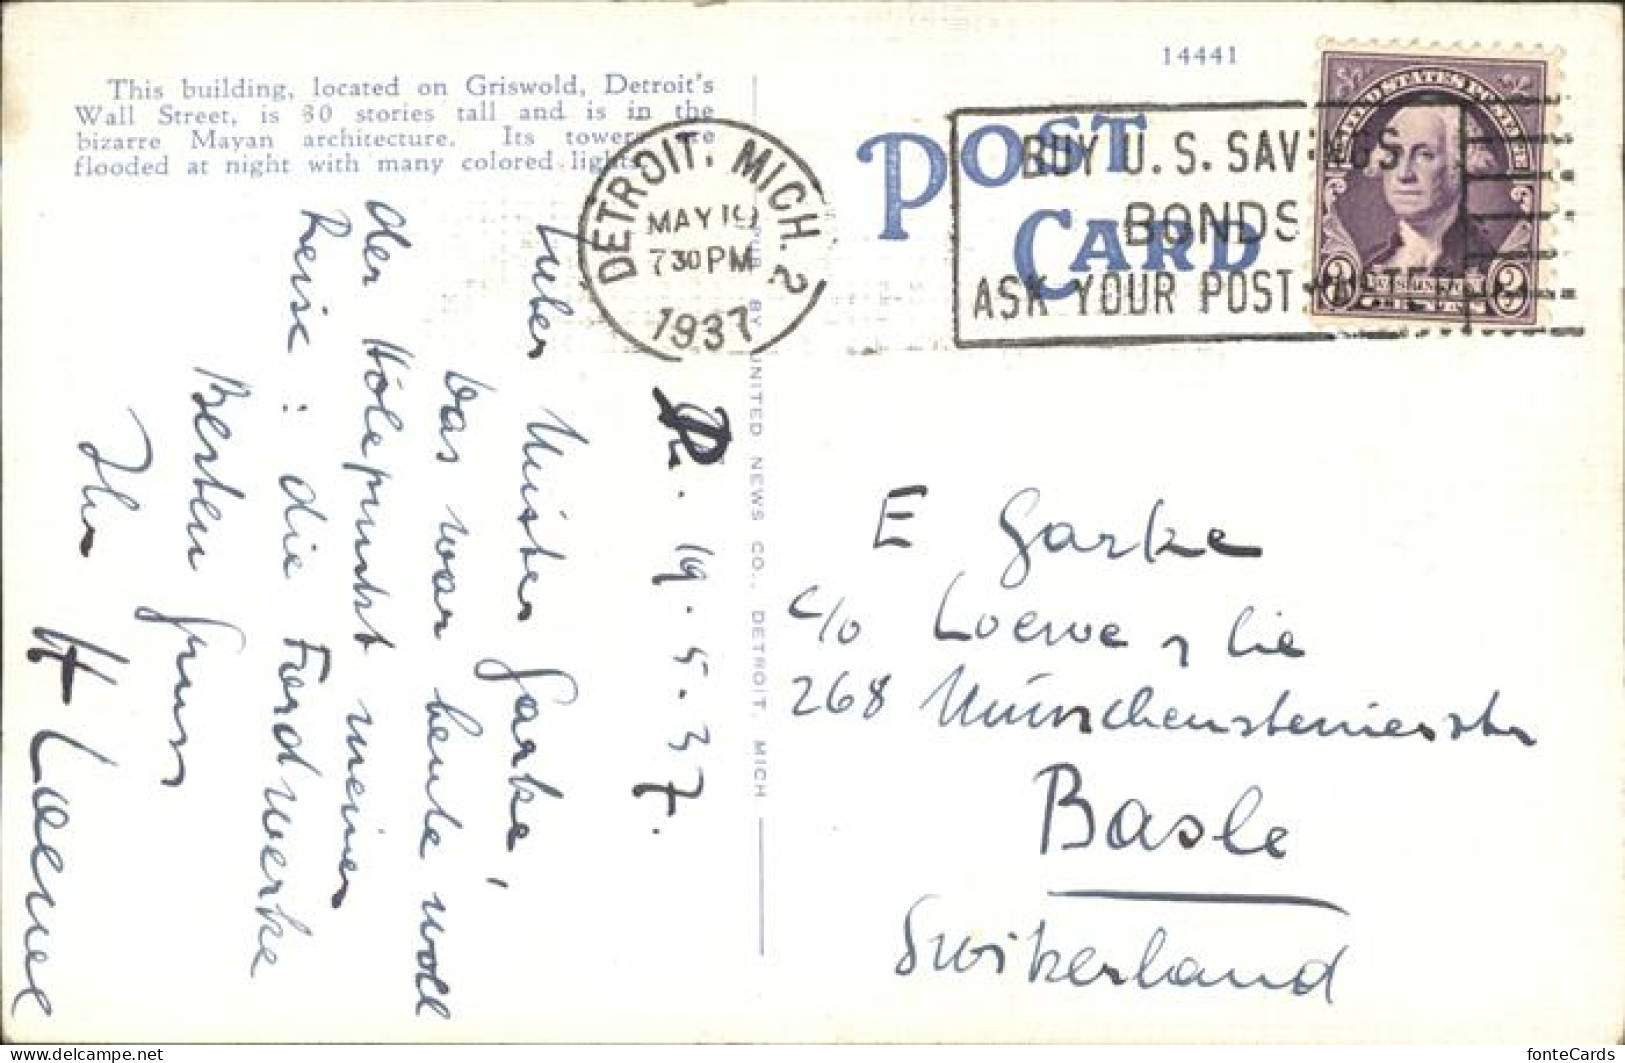 This building, located on Griswold, Detroit's
Wall Street, is 30 stories tall and is in the
bizarre Mayan architecture. Its towers are
flooded at night with many colored lights.
14441
POST
CARD
DETROIT, MICH. 2
MAY 19
7 30 PM
1937
BUY U. S. SAVINGS
BONDS
ASK YOUR POSTMASTER
UNITED STATES POSTAGE
WASHINGTON
3 3
PUB. BY UNITED NEWS CO., DETROIT, MICH
19. 5. 37.
Lieber Mister Garke,
Das war heute wohl
der Höhepunkt meiner
Reise: die Fordwerke
Besten Gruss
Ihr
H Loewe
E Garke
c/o Loewe & Cie
268 Münchensteinerstr
Basle
Switzerland
fonteCards
delcampe.net